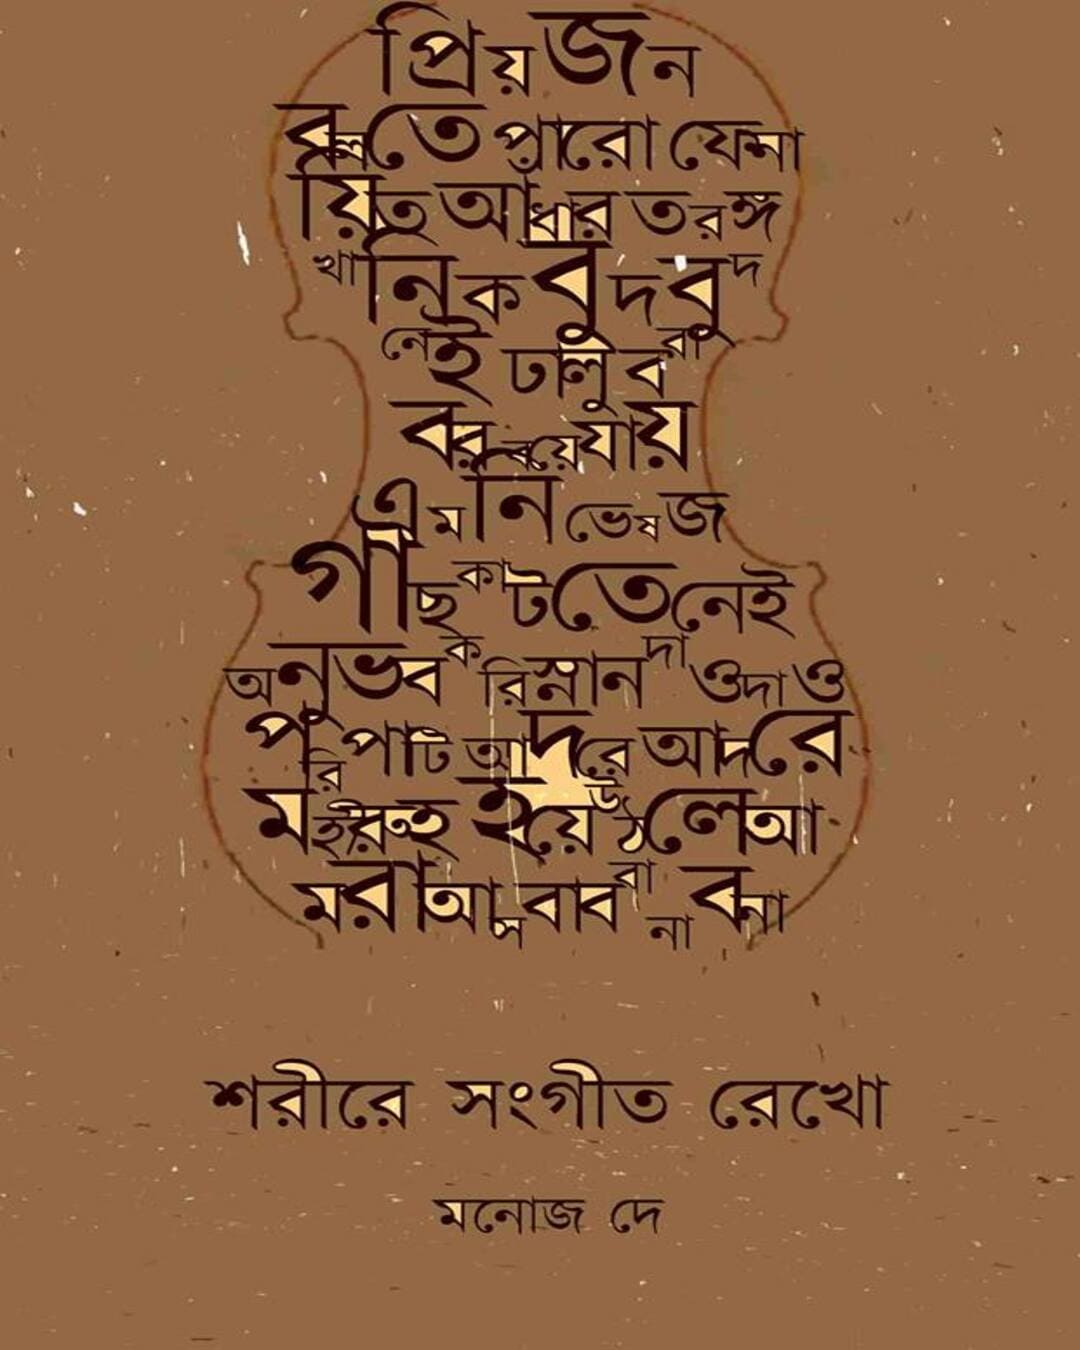 প্রিয়জন
বলতে পারো ফেনা
য়িত আঁধার তরঙ্গ
খানিক বুদবুদ
নেই ঢালু বরা
বর বয়ে যায়
এমনি ভেষজ
গাছ কাটতে নেই
অনুভব করি স্নান দাও দাও
পরিপাটি আদরে আদরে
মহীরুহ হয়ে উঠলে আ
মরা আসবাব বানাব না
শরীরে সংগীত রেখো
মনোজ দে